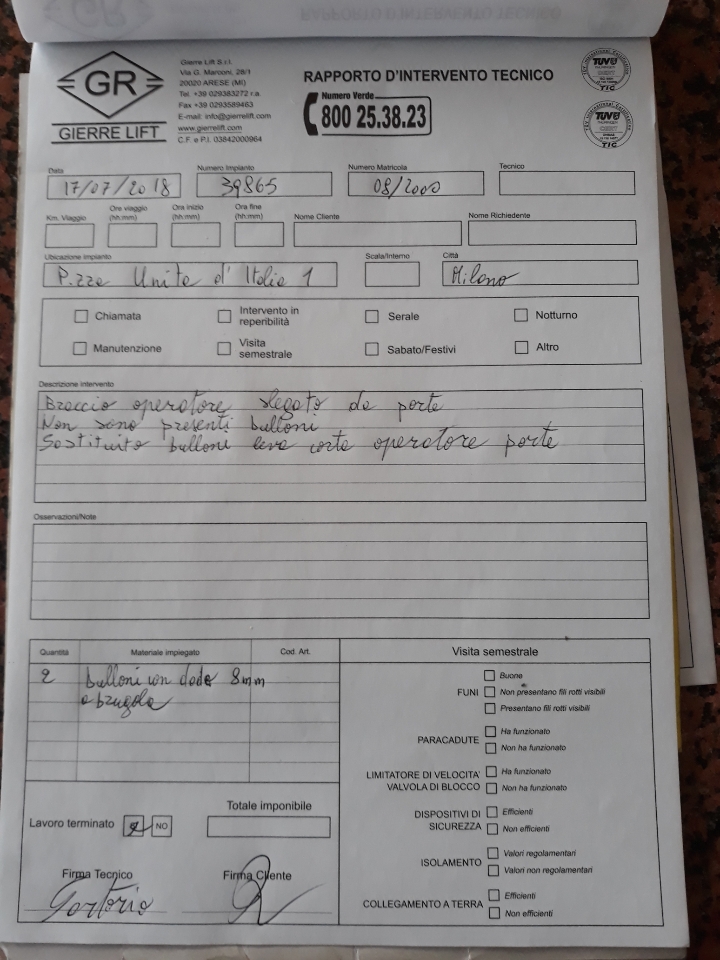 GR
GIERRE LIFT
Gierre Lift S.r.l.
Via G. Marconi, 28/1
20020 ARESE (MI)
Tel. +39 029383272 r.a.
Fax +39 0293589463
E-mail: info@gierrelift.com
www.gierrelift.com
C.F. e P.I. 03842000964
RAPPORTO D'INTERVENTO TECNICO
Numero Verde
800 25.38.23
TÜV
TIC
TÜV
TIC
Data Numero Impianto Numero Matricola Tecnico
17/07/2018 39865 08/2000
Km. Viaggio Ore viaggio (hh:mm) Ora inizio (hh:mm) Ora fine (hh:mm) Nome Cliente Nome Richiedente
Ubicazione Impianto Scala/Interno Città
P.zza Unita d'Italia 1 Milano
Chiamata Intervento in reperibilità Serale Notturno
Manutenzione Visita semestrale Sabato/Festivi Altro
Descrizione intervento
Braccio operatore slegato da porte
Non sono presenti bulloni
Sostituito bulloni leva corta operatore porte
Osservazioni/Note
Quantità Materiale impiegato Cod. Art. Visita semestrale
2 bulloni con dado 8mm
a brugola
FUNI
Buone
Non presentano fili rotti visibili
Presentano fili rotti visibili
PARACADUTE
Ha funzionato
Non ha funzionato
LIMITATORE DI VELOCITA'
VALVOLA DI BLOCCO
Ha funzionato
Non ha funzionato
DISPOSITIVI DI
SICUREZZA
Efficienti
Non efficienti
ISOLAMENTO
Valori regolamentari
Valori non regolamentari
COLLEGAMENTO A TERRA
Efficienti
Non efficienti
Totale imponibile
Lavoro terminato NO
Firma Tecnico Firma Cliente